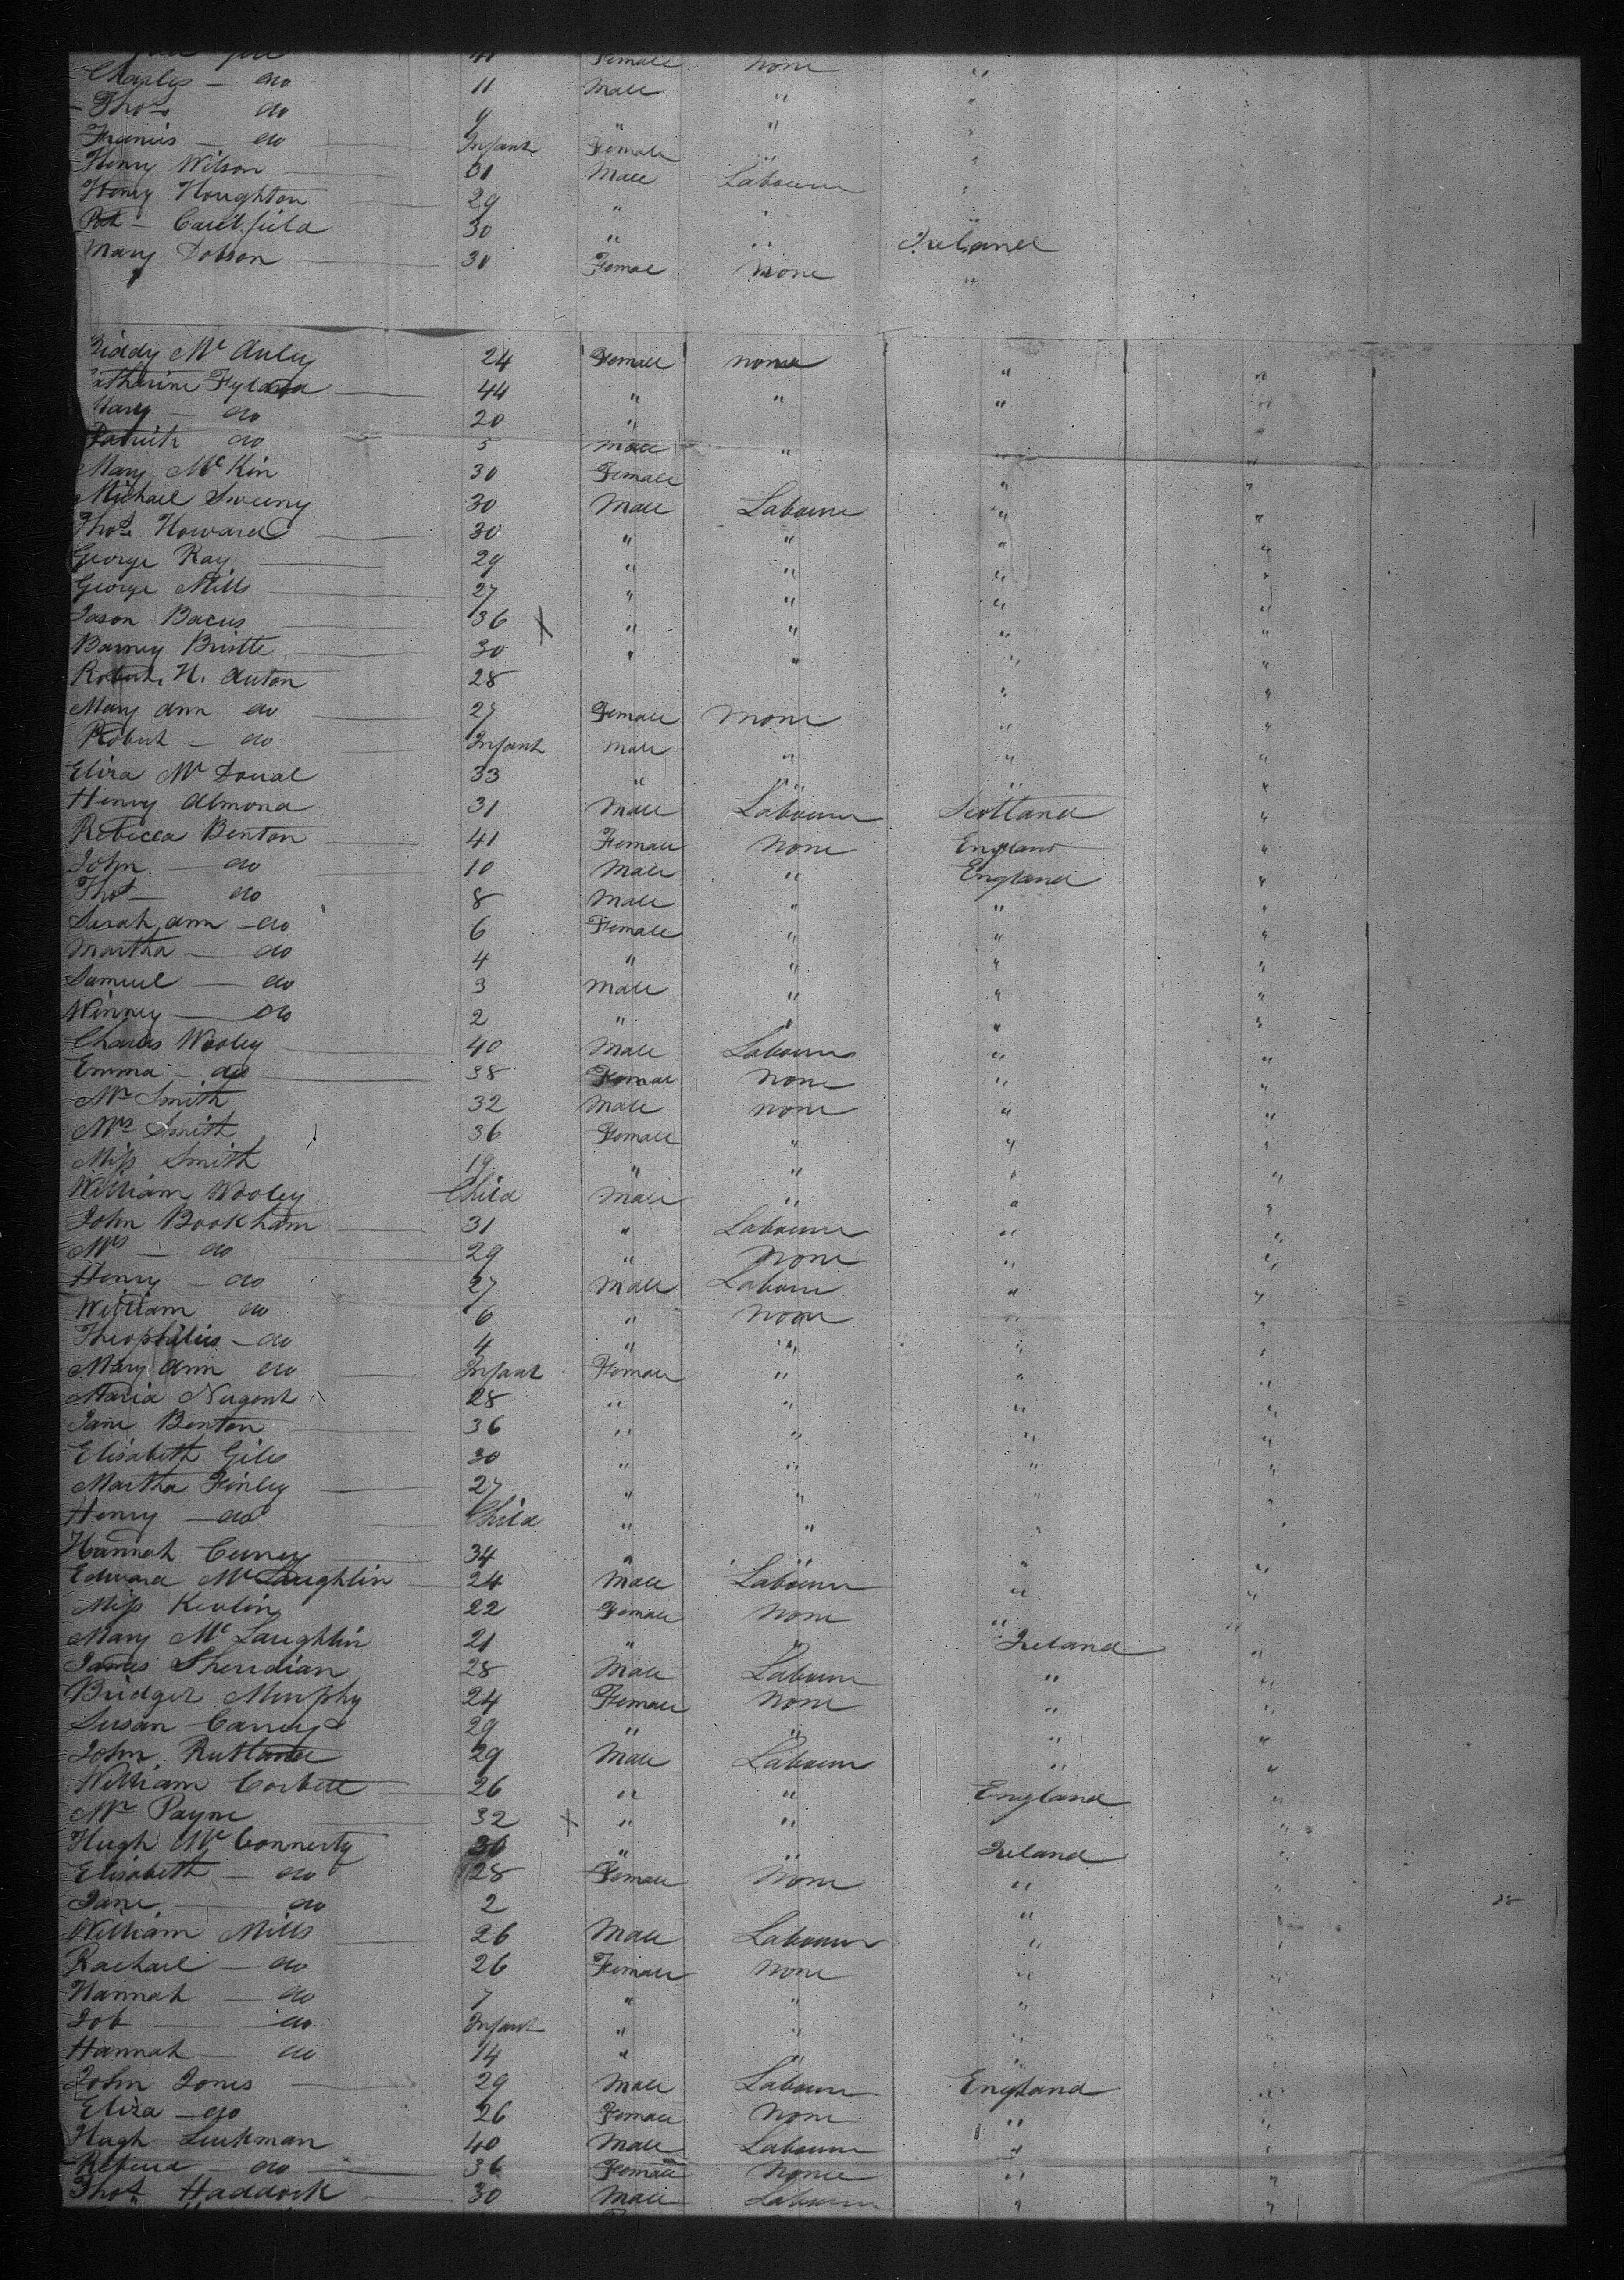 41 Female None
Charles — do 11 Male " "
Thos do 9 " " "
Francis — do Infant Female " "
Henry Wilson 31 Male Labourer "
Henry Houghton 29 " " "
Pat — Caulfield 30 " " Ireland
Mary Dobson 30 Femae None "
Biddy Mc Auley 24 Female none " "
Catherine 44 " " " "
Mary — do 20 " "
Patrick do 5 Male " " "
Mary Mc Kin 30 Female " "
Michael Sweeny 30 Male Labourer " "
Thos. Howard 30 " " " "
George Ray 29 " " " "
George Mills 27 " " " "
Jason Bacus 36 X " " " "
Barney Bristle 30 " " " "
Robert. H. Auton 28 " "
Mary Ann do 27 Female None " "
Robert — do Infant Male " " "
Eliza Mc Doual 33 " " " "
Henry Almond 31 Male Labourer Scotland "
Rebecca Benton 41 Female None England "
John — do 10 Male " England "
Thos — do 8 Male " " "
Sarah Ann — do 6 Female " " "
Martha — do 4 " " " "
Samuel — do 3 Male " " "
Winney — do 2 " " " "
Charles Wooley 40 Male Labourer " "
Emma — do 38 Femal None " "
Mr Smith 32 Male none " "
Mrs Smith 36 Female " " "
Miss Smith 19 " " " "
William Wooley Child Male " " "
John Bookham 31 " Labourer " "
Mrs — do 29 " None " "
Henry — do 27 Male Labourer " "
William do 6 " None " "
Theophilus — do 4 " " " "
Mary Ann do Infant Female " " "
Maria Nugent 28 " " " "
Jane Benton 36 " " " "
Elisabeth Giles 30 " " " "
Martha Finley 27 " " " "
Henry — do Child " " " "
Hannah 34 " " " "
Edward McLaughlin 24 Male Labourer " "
Miss 22 Female None " "
Mary Mc Laughlin 21 " " Ireland "
James Sheridian 28 Male Labourer " "
Bridget Murphy 24 Female None " "
Susan Carney 29 " " " "
John Rutland 29 Male Labourer " "
William Corbett 26 " " England "
Mr Payne 32 X " " "
Hugh Mc Connerty 30 " " Ireland "
Elisabeth — do 28 Female None " "
Jane — do 2 " " 28
William Mills 26 Male Labourer " "
Rachael — do 26 Female None " "
Hannah — do 7 " " " "
Job — do Infant " " " "
Hannah — do 14 " " " "
John Jones 29 Male Labourer England "
Eliza — do 26 Female None " "
Hugh Luckman 40 Male Labourer " "
Rebecca do 36 Female None " "
Thos Haddock 30 Male Labourer " "